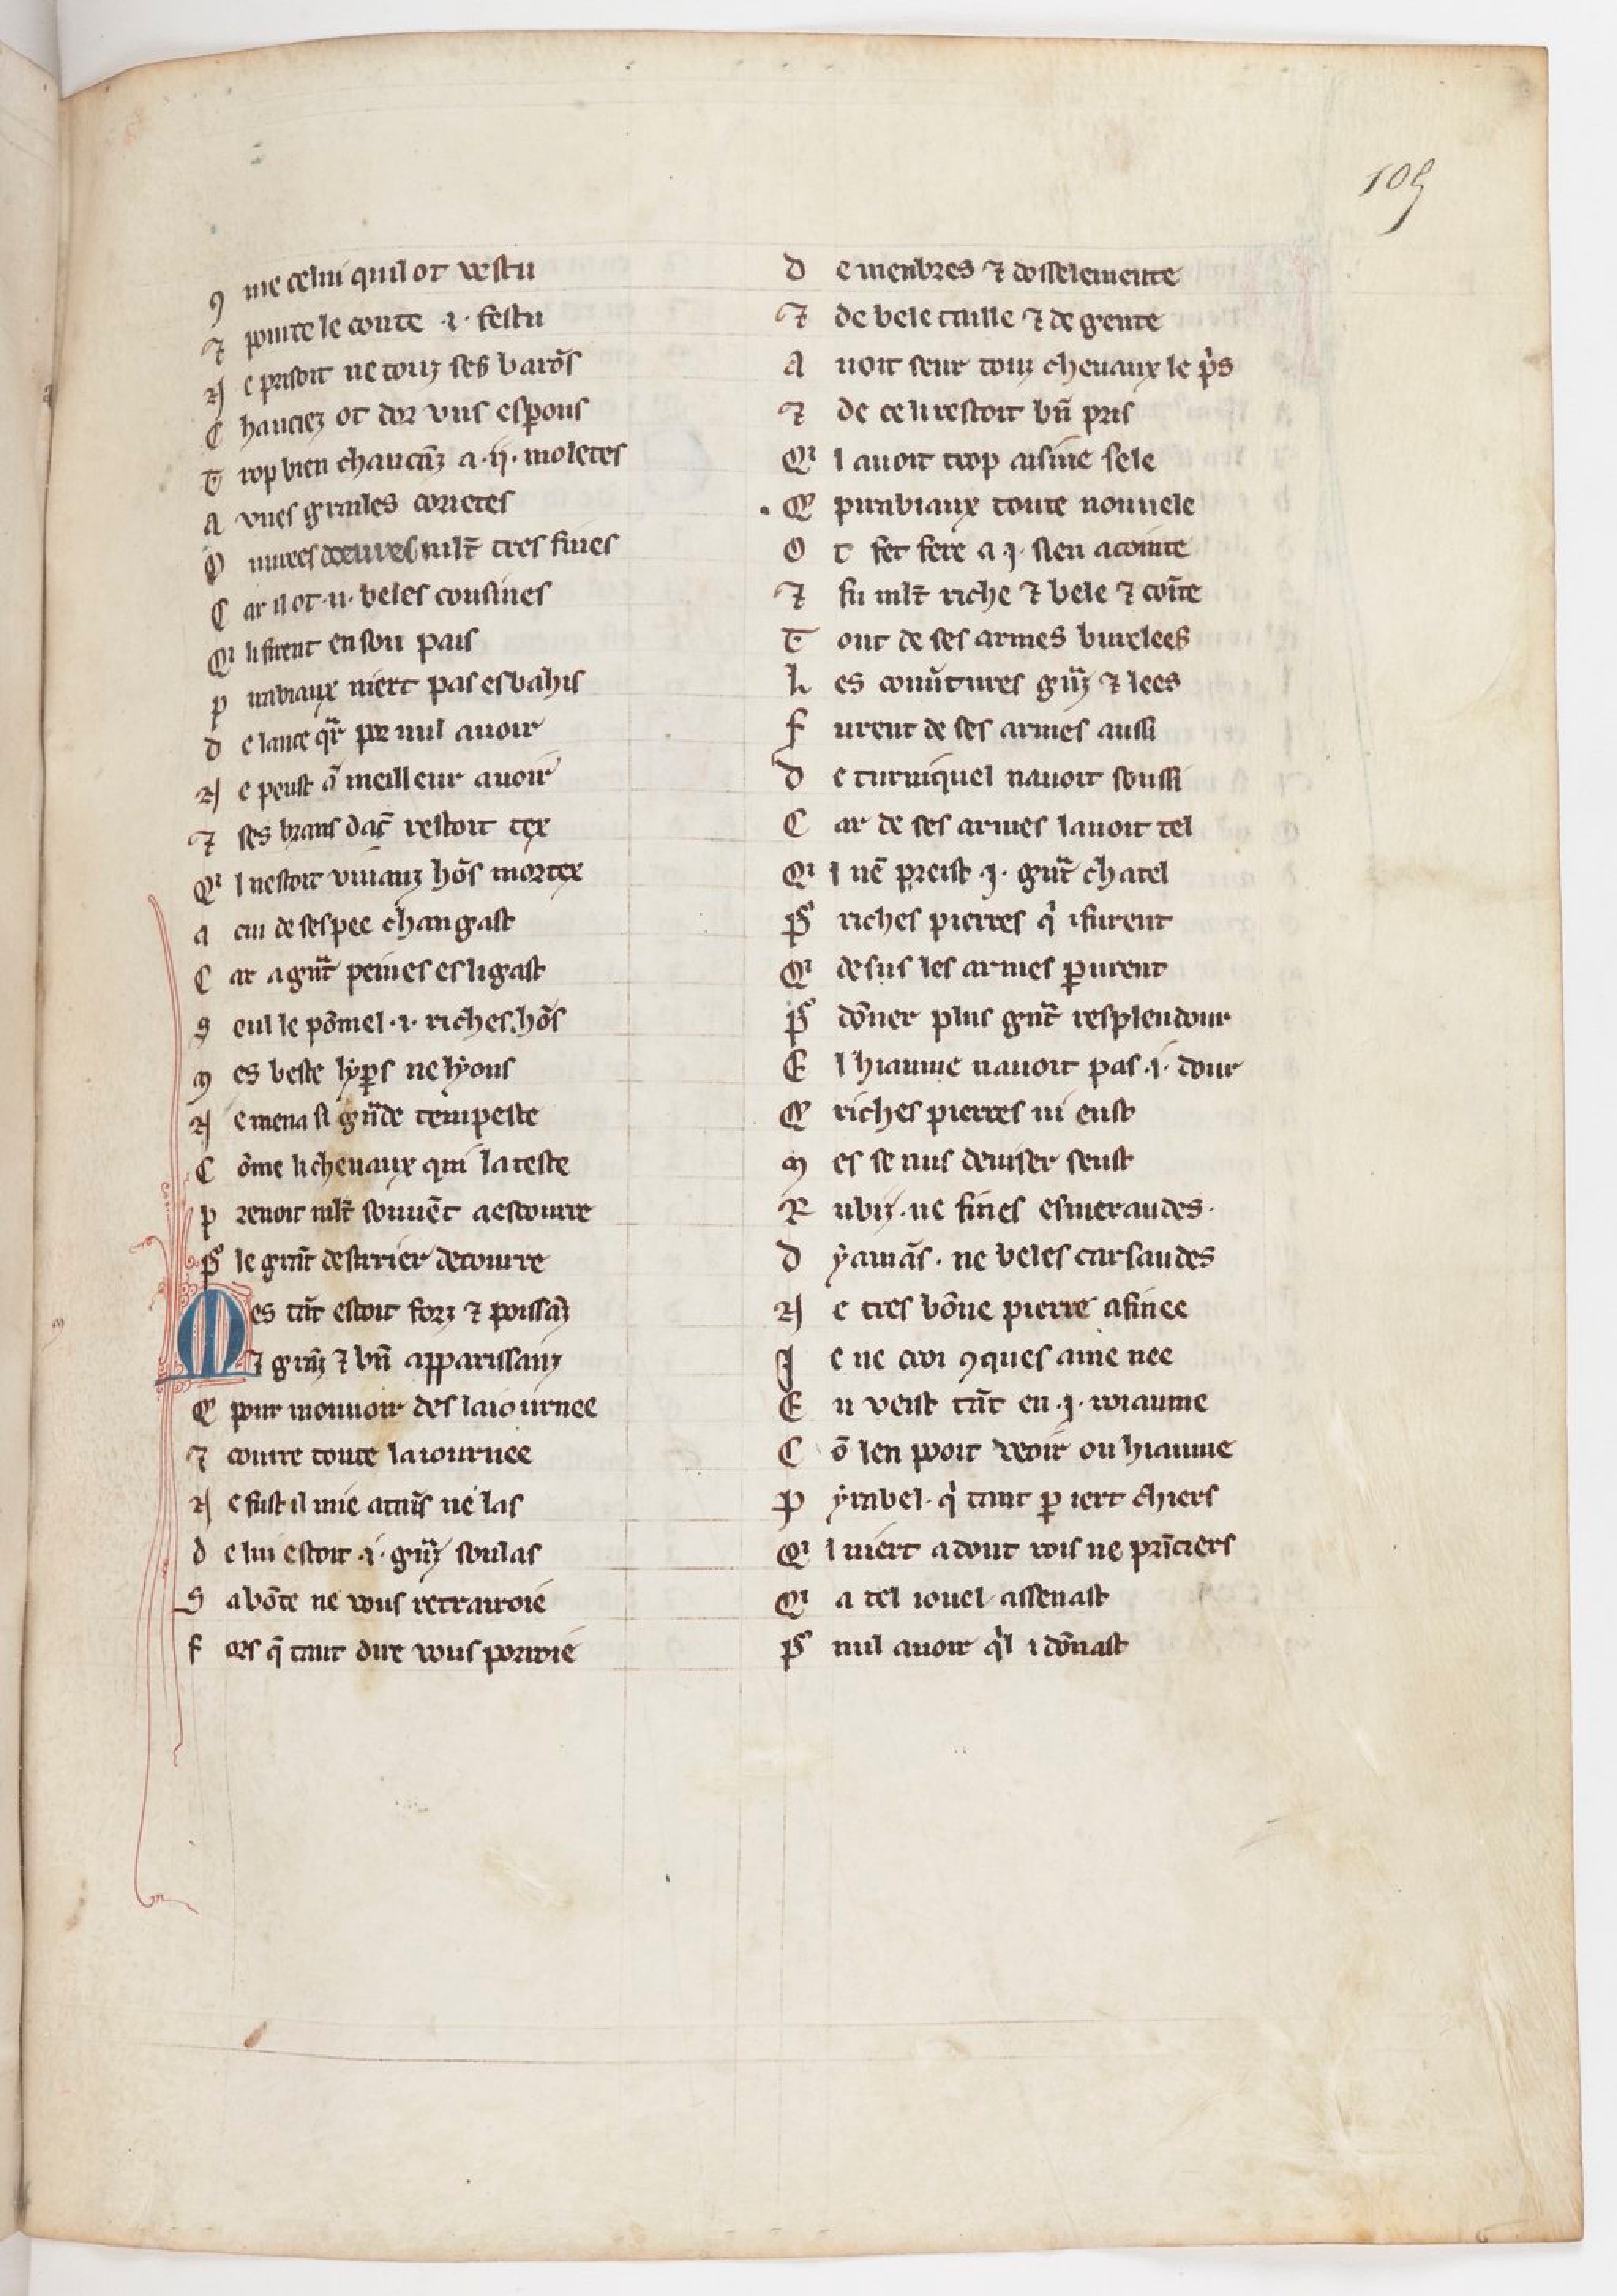 109
9 me celui quil ot vestu
⁊ pointe le conte .i. festu
N e prisoit ne touz ses barõs
C hauciez ot dor vns esperons
T rop bien chaucãz a .ij. moletes
A vnes grailes coretes
O uurees doeuures mlt̃ tres fines
C ar il ot .ii. beles cousines
Qi li firent en son pais
P nabiaux niert pas esbahis
D e lance qͬr por nul auoir
N e peust õ meilleur auoir
⁊ ses brans dac̃ restoit tex
Qi l nestoit viuanz hõs mortex
A cui de sespee changast
C ar a gñt peines esligast
S eul le põmel .i. riches hõs
M es beste lyꝑs ne lyons
N e mena si gñde tempeste
C õme li cheuaux qui la teste
P renoit mlt̃ souuẽt a escourre
Pͬ le gñt destrier decourre
M es tãt estoit forz ⁊ poissãz
⁊ grãz ⁊ bñ apparissanz
Q pour mouuoir des laiournee
⁊ courre toute la iournee
N e fust il mie atains ne las
D e lui estoit .i. grãz soulas
S a bõte ne vous retrairoie
F ors q̃ tant dire vous porroie
D e menbres ⁊ dosselemente
⁊ de bele taille ⁊ de gente
A uoit seur touz cheuaux le pͥs
⁊ de ce li restoit bñ pris
Qi l auoit trop aisine sele
Q pnabiaux toute nouuele
O t fet fere a .j. sien acointe
⁊ fu mlt̃ riche ⁊ bele ⁊ coĩte
T out de ses armes burelees
L es couũtures grãz ⁊ lees
F urent de ses armes aussi
D e turniquel nauoit soussi
C ar de ses armes lauoit tel
Qi l nẽ preist .j. gñt chatel
Pͬ riches pierres qͥ i furent
Qi desus les armes ꝑurent
Pͬ dõner plus gñt resplendour
E l hiaume nauoit pas .i. dour
Q riches pierres ni eust
M es se nus deuiser seust
R ubiz . ne fines esmeraudes .
D yamãs . ne beles carsaudes
N e tres bõne pierre afinee
J e ne croi 9ques ame nee
E n veist tãt en .j. roiaume
C õ len pooit veoir ou hiaume
P yrabel . qͥ tant ꝑ iert chiers
Qi l niert adont rois ne prĩciers
Qi a tel iouel assenast
Pͬ nul auoir qͥl i dõnast